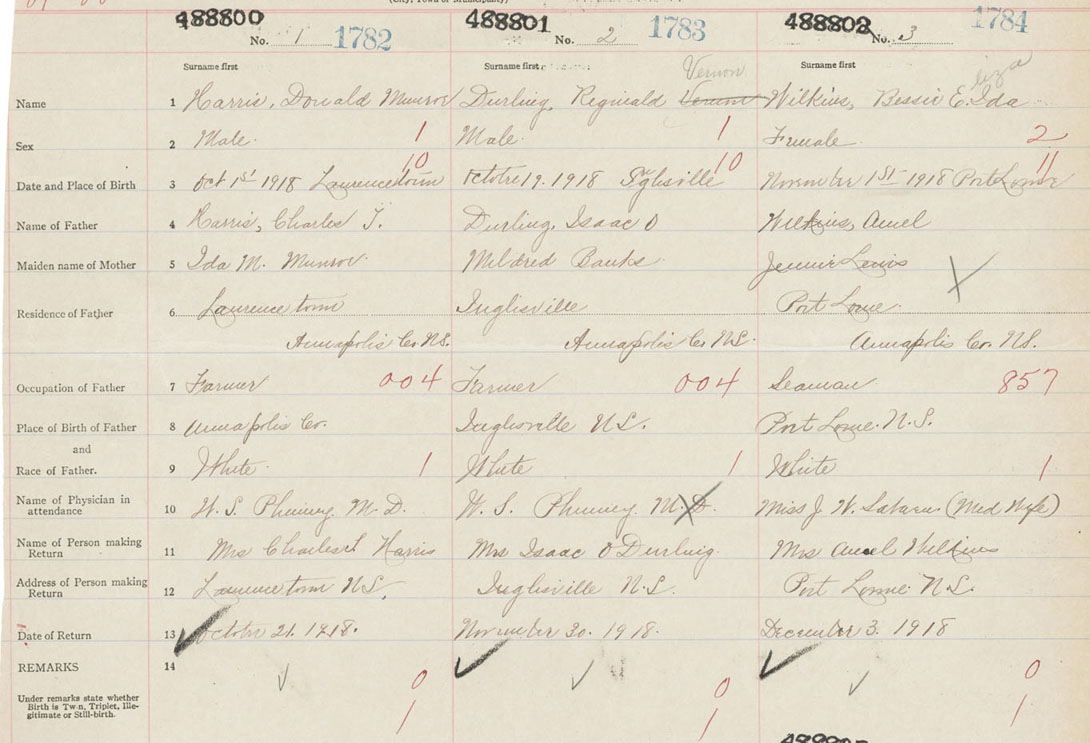 (City, Town or Municipality)
488800 488801 488802
No. 1 1782 No. 2 1783 No. 3 1784
Surname first Surname first Surname first
Vernon Eliza
Name 1 Harris, Donald Munroe Durling, Reginald Vernon Wilkins, Bessie E. Ida
Sex 2 Male 1 Male 1 Female 2
10 10 11
Date and Place of Birth 3 Oct 1st 1918 Laurencetown 19. 1918 November 1st 1918 Port Lorne
Name of Father 4 Harris, Charles T. Durling, Isaac O Wilkins,
Maiden name of Mother 5 Ida M. Munroe Mildred Banks Jennie Lewis
Residence of Father 6 Laurencetown Inglisville Port Lorne
Annapolis Co. N.S. Annapolis Co. N.S. Annapolis Co. N.S.
Occupation of Father 7 Farmer 004 Farmer 004 Seaman 857
Place of Birth of Father 8 Annapolis Co. Inglisville N.S. Port Lorne. N.S.
and
Race of Father. 9 White 1 White 1 White 1
Name of Physician in
attendance 10 W. S. Phinney M.D. W. S. Phinney M.D. Miss J. W. (Med Wife)
Name of Person making
Return 11 Mrs Charles Harris Mrs Isaac O Durling Mrs Wilkins
Address of Person making
Return 12 Laurencetown N.S. Inglisville N.S. Port Lorne N.S.
Date of Return 13 October 21. 1918. November 30. 1918. December 3. 1918
REMARKS 14 0 0 0
Under remarks state whether
Birth is Twn, Triplet, Ille-
gitimate or Still-birth. 1 1 1